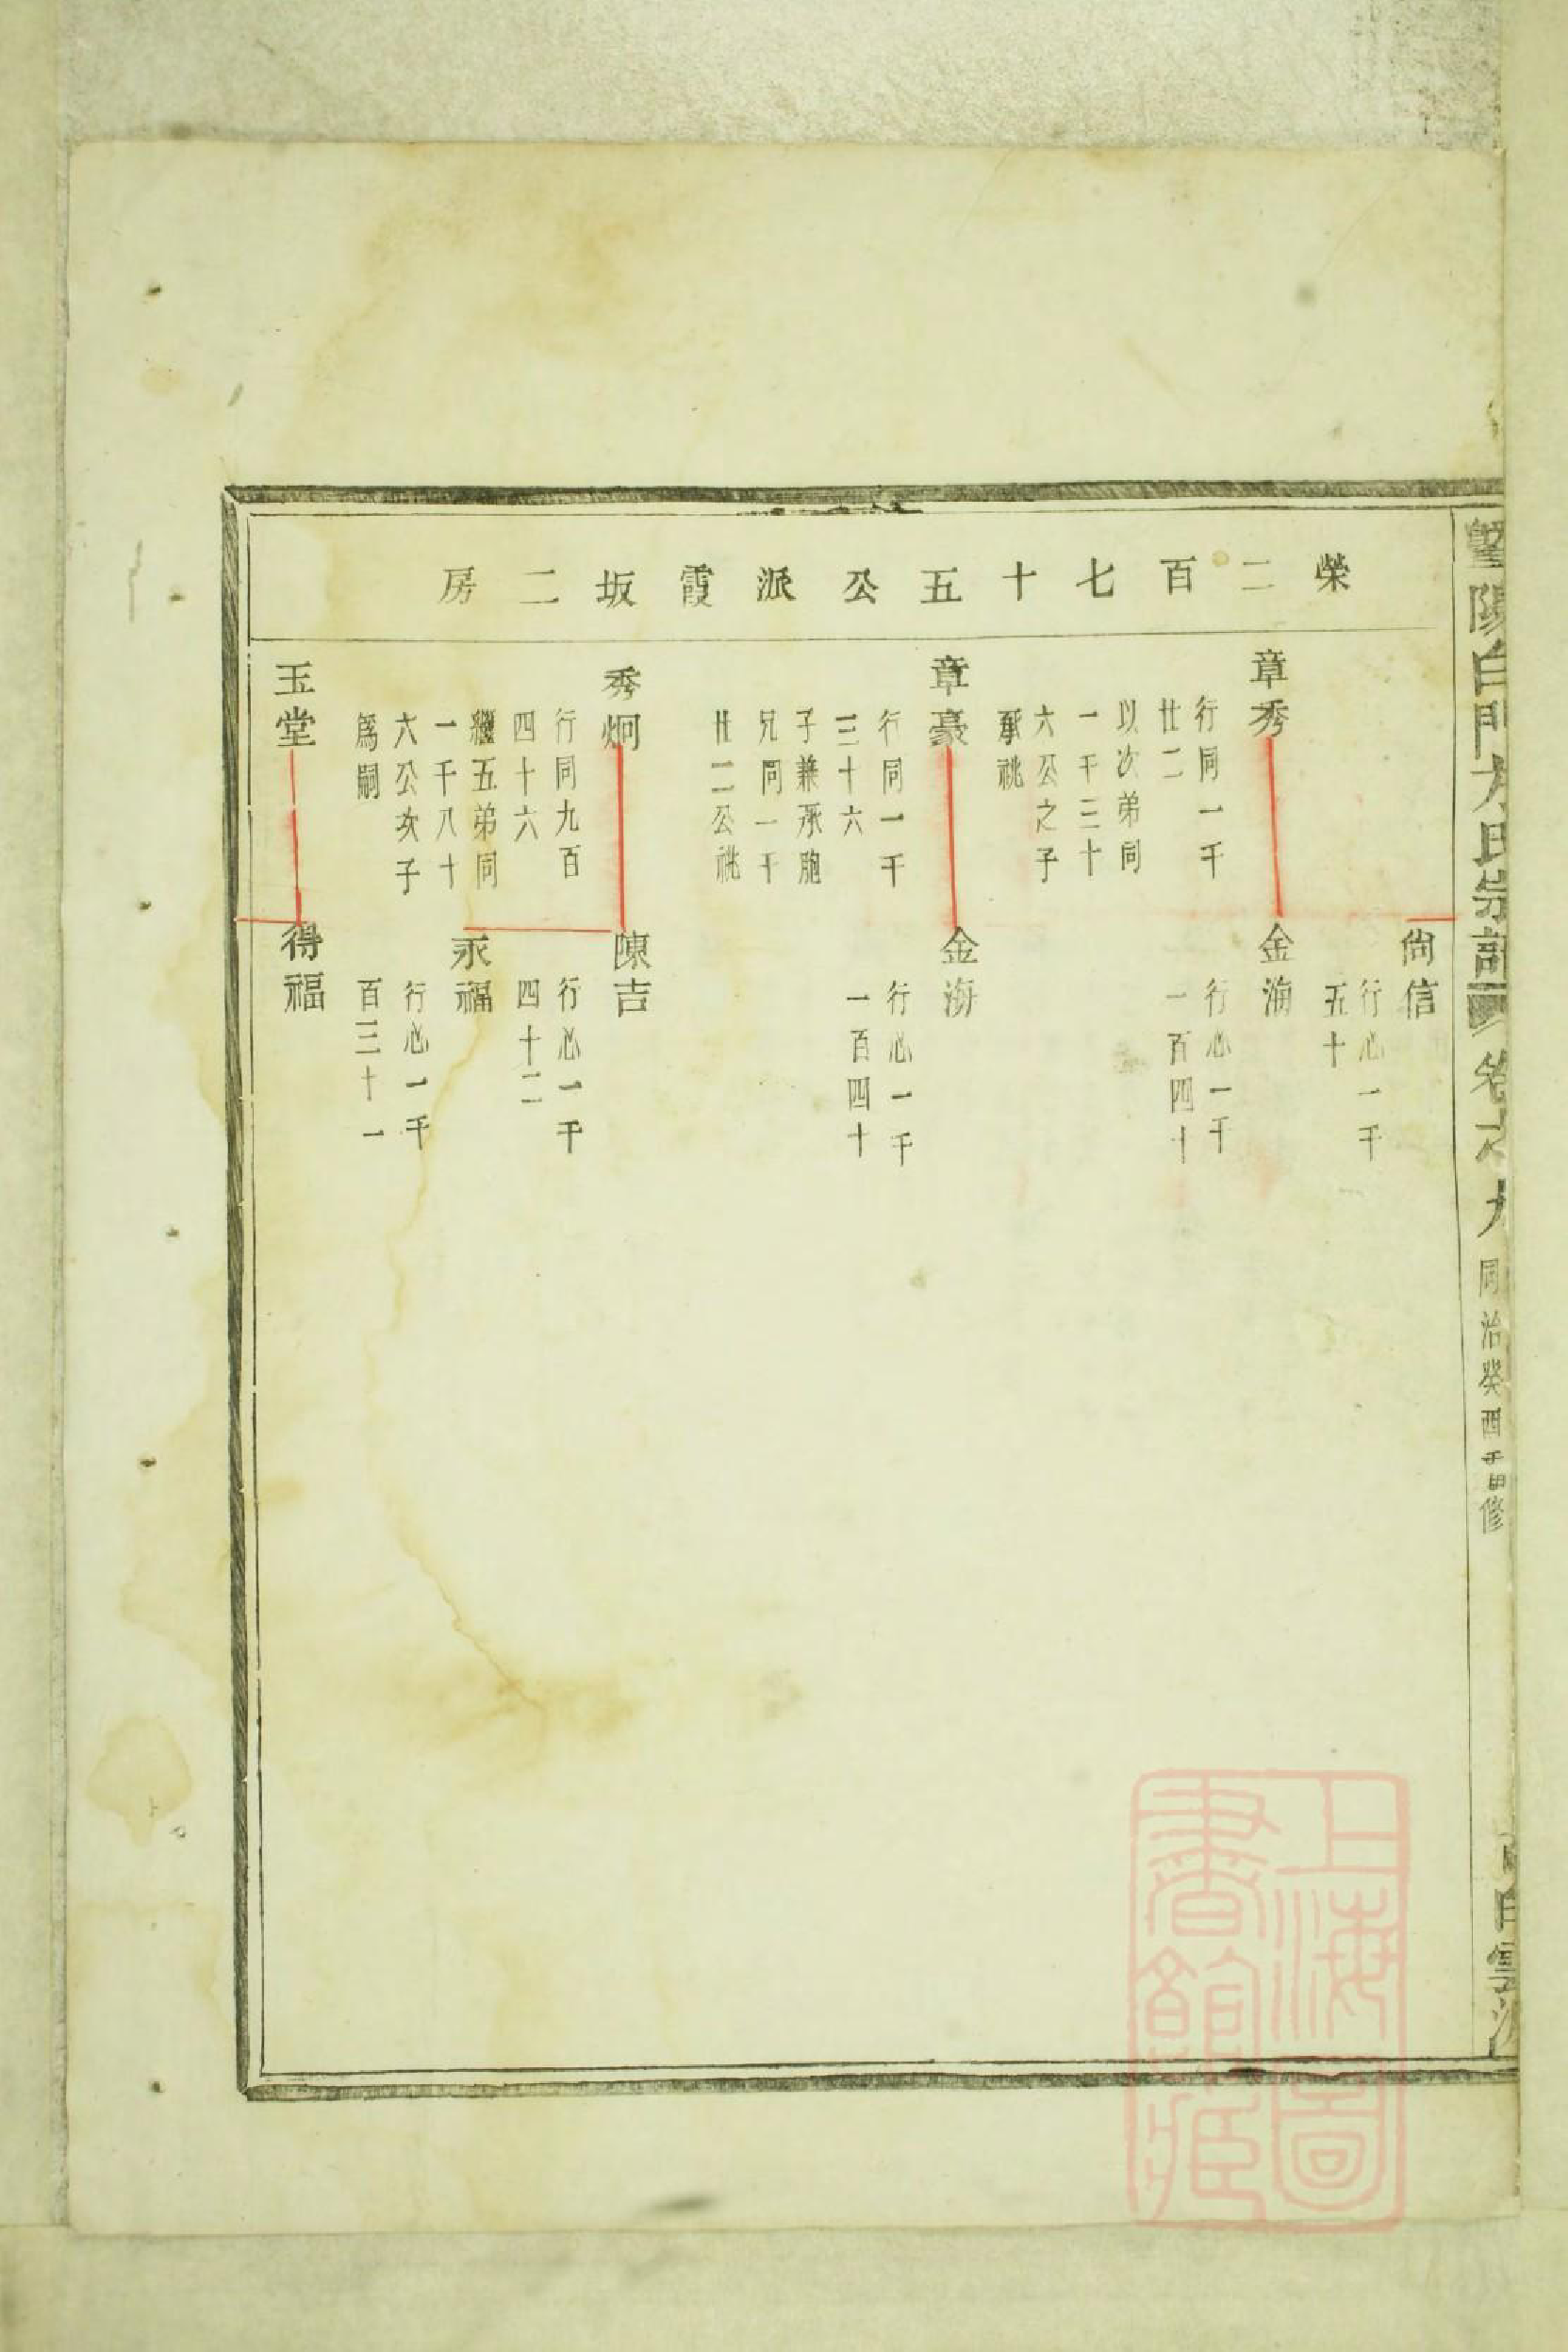 暨陽白門方氏宗譜
卷之九
同治癸酉重修
白雲派
榮二百七十五公派霞坂二房
尙信
行恣一千
五十
章秀
行同一千
廿二
以次弟同
一千三十
六公之子
承祧
金海
行恣一千
一百四十
章豪
行同一千
三十六
子兼承胞
兄同一千
廿二公祧
金海
行恣一千
一百四十
秀炯
行同九百
四十六
繼五弟同
一千八十
六公次子
爲嗣
陳吉
行恣一千
四十二
永福
行恣一千
百三十一
玉堂
得福
上海圖
書館藏